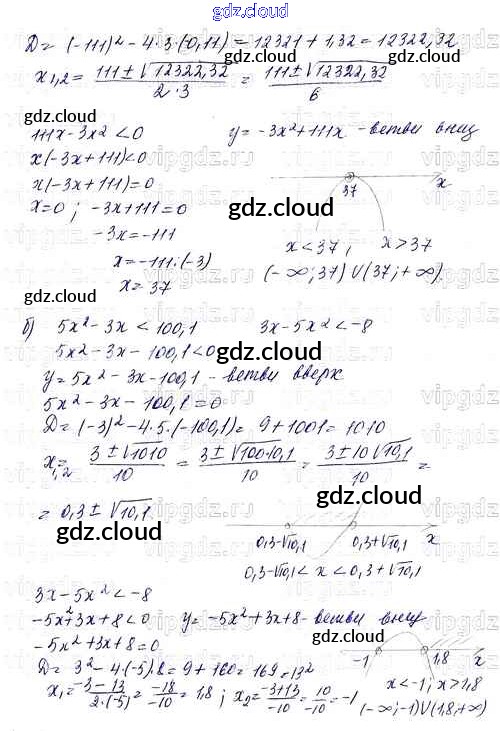 gdz.cloud
D = (-111)² - 4·3·(0,11) = 12321 + 1,32 = 12322,32
x1,2 = (111 ± √12322,32)/(2·3) = (111 ± √12322,32)/6
gdz.cloud gdz.cloud
111x - 3x² < 0 y = -3x² + 111x - ветви вниз
x(-3x + 111) < 0
x(-3x + 111) = 0
x = 0 ; -3x + 111 = 0
37 x
gdz.cloud gdz.cloud
-3x = -111
x = -111·(-3)
x = 37
x < 37 ; x > 37
(-∞; 37) ∪ (37; +∞)
gdz.cloud
б) 5x² - 3x < 100,1 3x - 5x² < -8
5x² - 3x - 100,1 < 0
gdz.cloud
y = 5x² - 3x - 100,1 - ветви вверх
5x² - 3x - 100,1 = 0
D = (-3)² - 4·5·(-100,1) = 9 + 1001 = 1010
x1,2 = (3 ± √1010)/10 = (3 ± √100·10,1)/10 = (3 ± 10√10,1)/10 =
= 0,3 ± √10,1
gdz.cloud gdz.cloud
0,3-√10,1 0,3+√10,1 x
0,3-√10,1 < x < 0,3+√10,1
gdz.cloud
3x - 5x² < -8
-5x² + 3x + 8 < 0 y = -5x² + 3x + 8 - ветви вниз
-5x² + 3x + 8 = 0
gdz.cloud
D = 3² - 4·(-5)·8 = 9 + 160 = 169 = 13²
-1 1,8 x
x1 = (-3-13)/(2·(-5)) = (-18)/(-10) = 1,8 ; x2 = (-3+13)/(-10) = 10/(-10) = -1
x < -1 ; x > 1,8
(-∞; -1) ∪ (1,8; +∞)